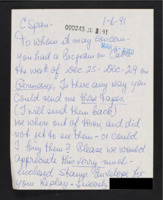 C Span - 1-6-91
000243
To whom it may concern -
you had a Program on
the week of Dec 25 - Dec. 29 on
Germany. Is there any way you
could send me those tapes
(I will send them back)
we were out of town and did
not get to see them - or could
I buy them? Please we would
appreciate this very much -
enclosed stamp envelope for
your replay - Sincerely